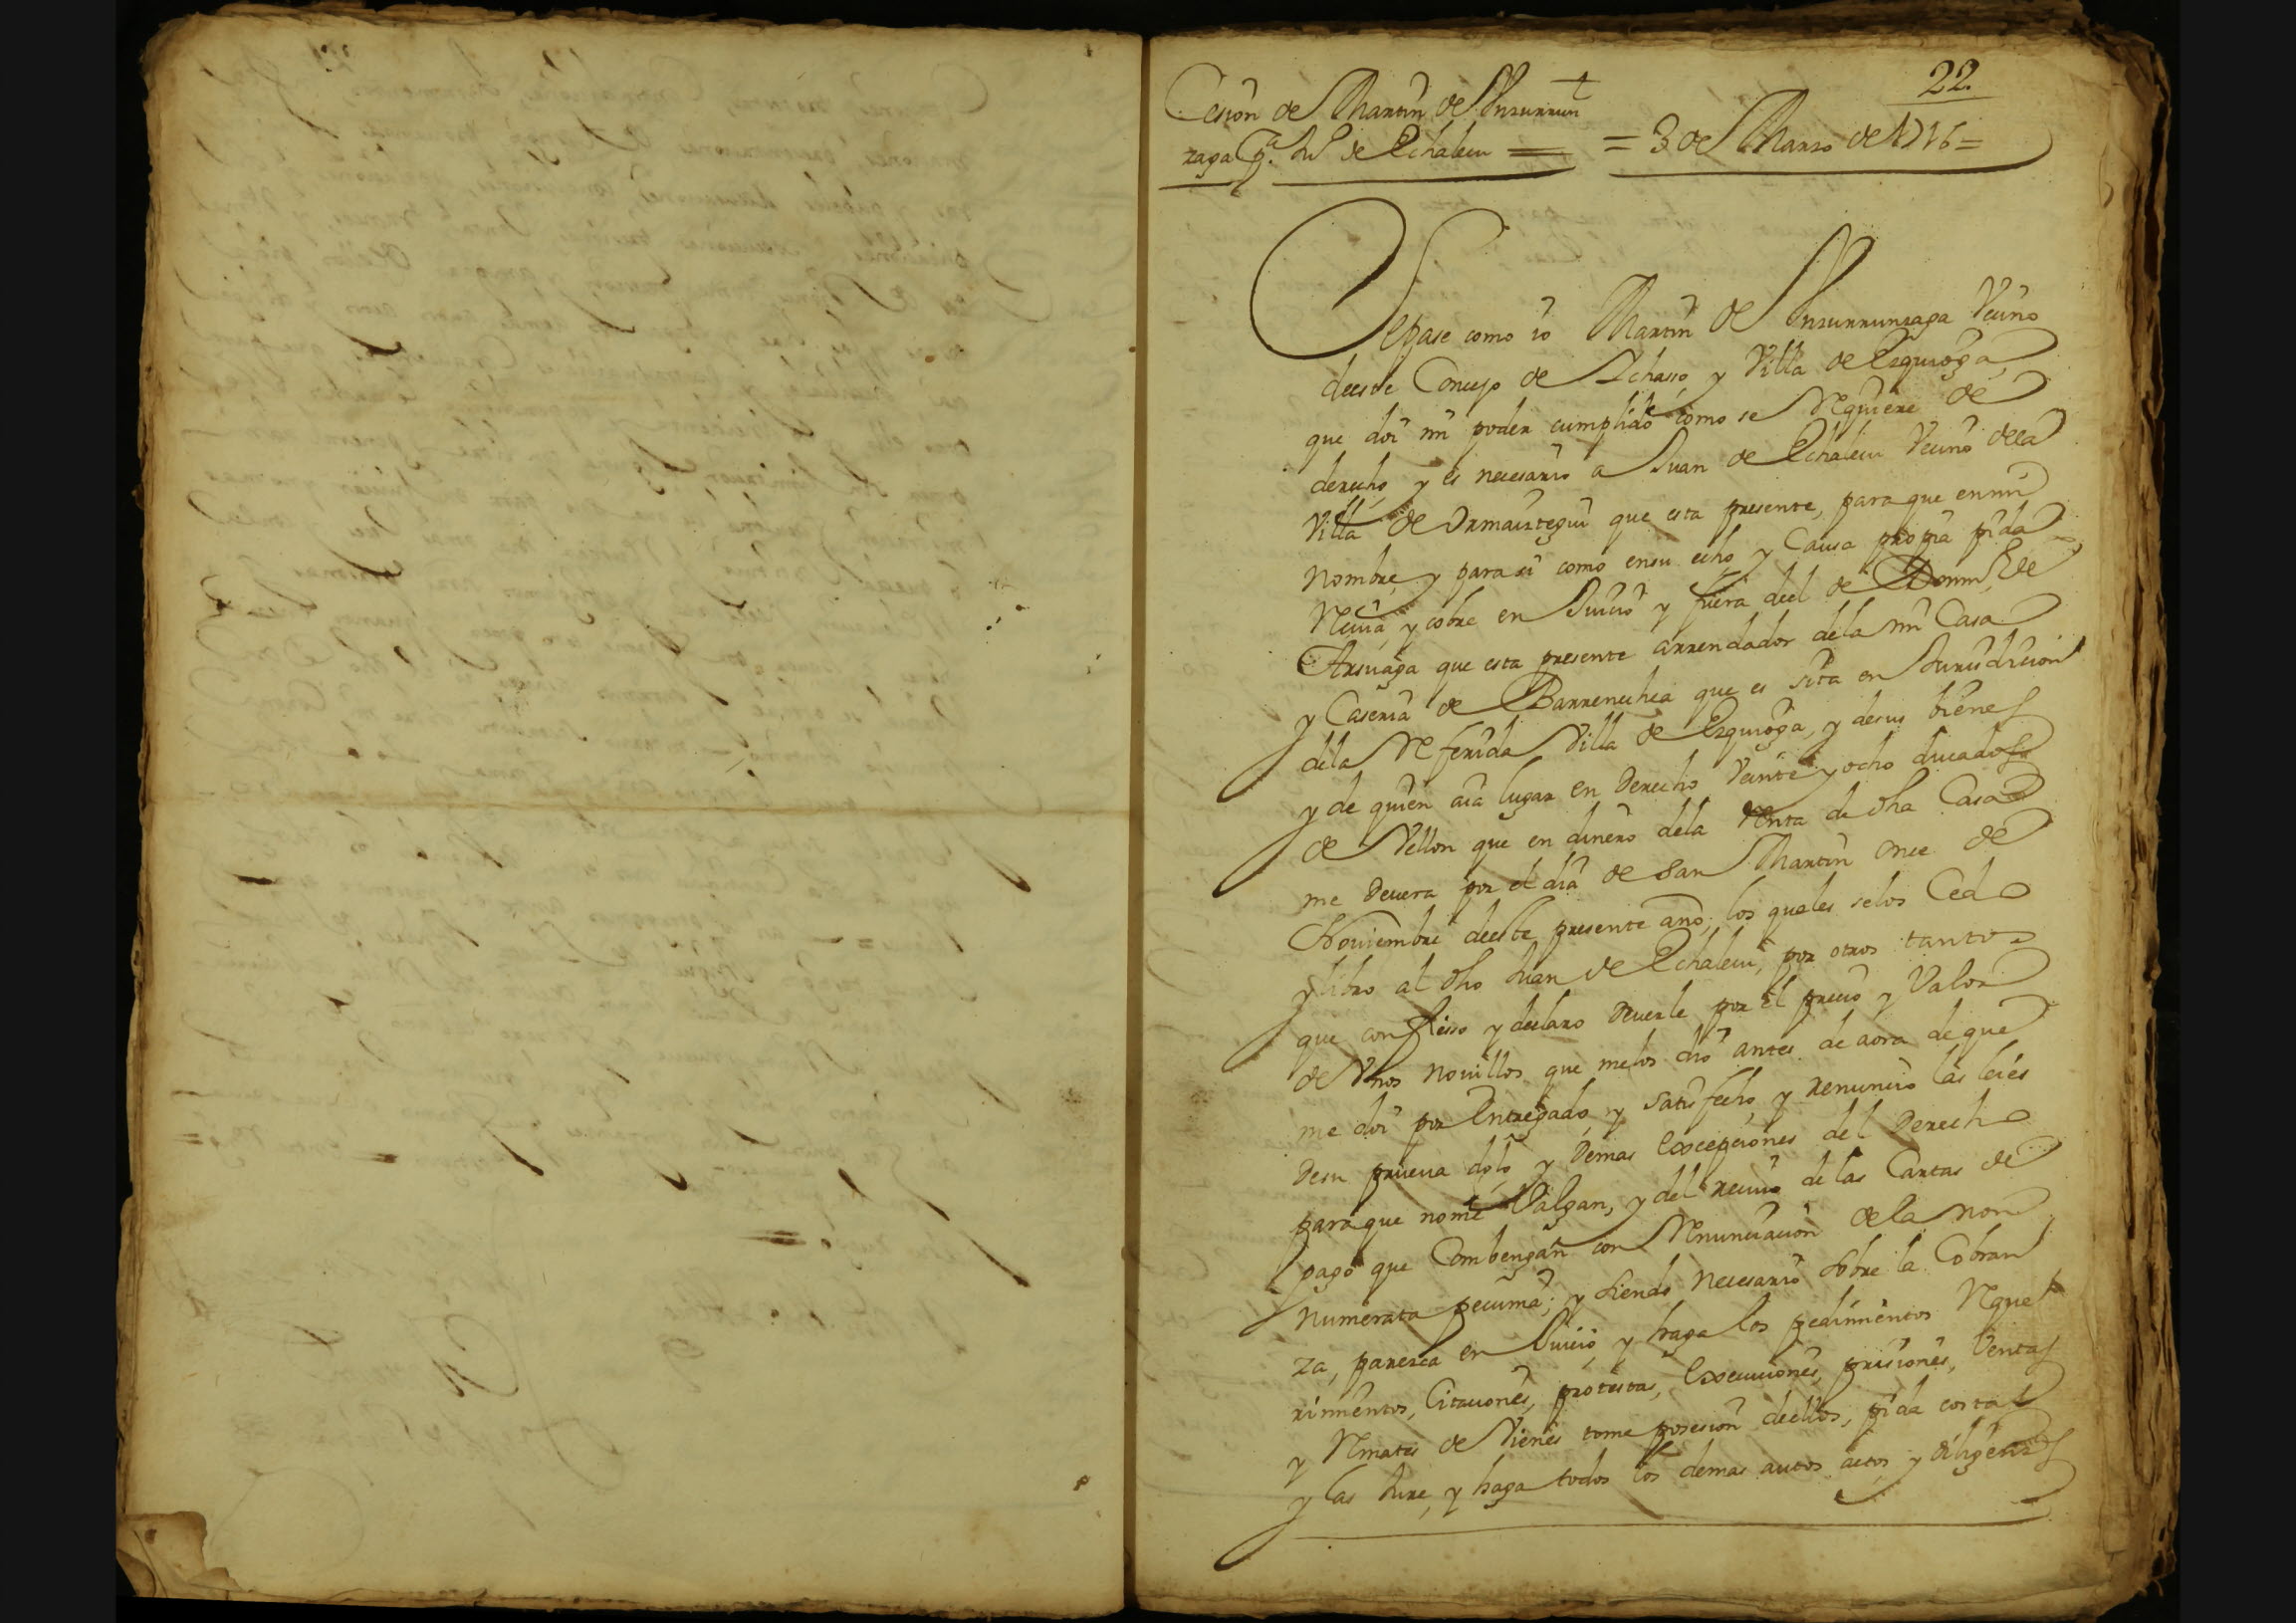 22
Cesion de Martin de Ynzurrun
zaga Pa. Ju.º de Echaleeu = = 3 de Marzo de 1716 =
Sepase como io Martin de Ynzurrunzaga Vecino
deeste Concejo de Ichasso, y Villa de Ezquioga,
que doi mi poder cumplido como se requiere de
derecho, y es necesario a Juan de Echaleeu Vecino dela
Villa de Ormaiztegui que esta presente, para que en mi
nombre, y para si como ensu echo, y Causa propia pida
reciva, y cobre en Juicio y fuera deel de Domin.º de
Arsuaga que esta presente arrendador dela mi Casa
y Caseria de Barrenechea que es sita en Jurisdicion
dela referida Villa de Ezquioga, y desus bienes
y de quien aia lugar en Derecho Veinte y ocho ducados
de Vellon que en dinero dela renta de dha Casa
me Devera por el dia de San Martin once de
Noviembre deeste presente año, los quales selos Cedo
y libro al dho Juan de Echaleeu, por otros tantos
que confiesso y declaro Deverle por el precio y Valor
de Unos novillos que melos dio antes de aora de que
me doi por Entregado, y satisfecho, y renuncio las leies
Desu prueva dolo, y Demas Excepciones del Derecho
para que nome Valgan, y del recivo de las Cartas de
pago que Combengan con renunciacion dela non
numerata pecunia; y siendo necesario sobre la Cobran
za, paresca en Juicio, y haga los pedimientos reque
rimientos, Citaciones, protestas, Execuciones, prisiones, Ventas
y remates de Vienes tome posesion deellos, pida costas
y las Jure, y haga todos los demas autos actos y diligencias